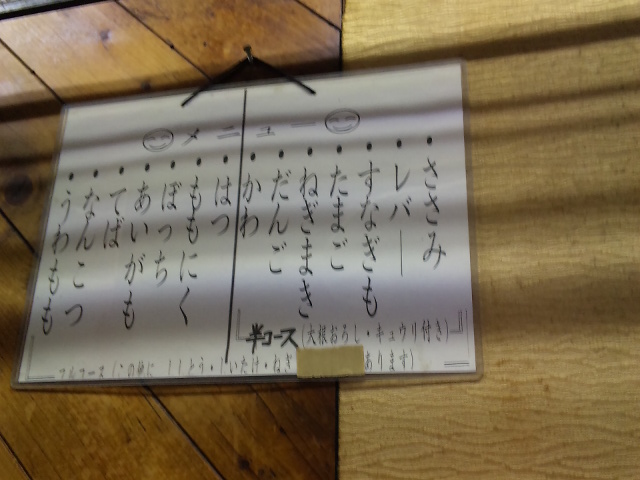 メニュー
・ささみ
・レバー
・すなぎも
・たまご
・ねぎまき
・だんご
・かわ
・はつ
・ももにく
・ぼっち
・あいがも
・てば
・なんこつ
・うわもも
半コース(大根おろし・キュウリ付き)
フルコース(この他に ししとう・しいたけ・ あります)